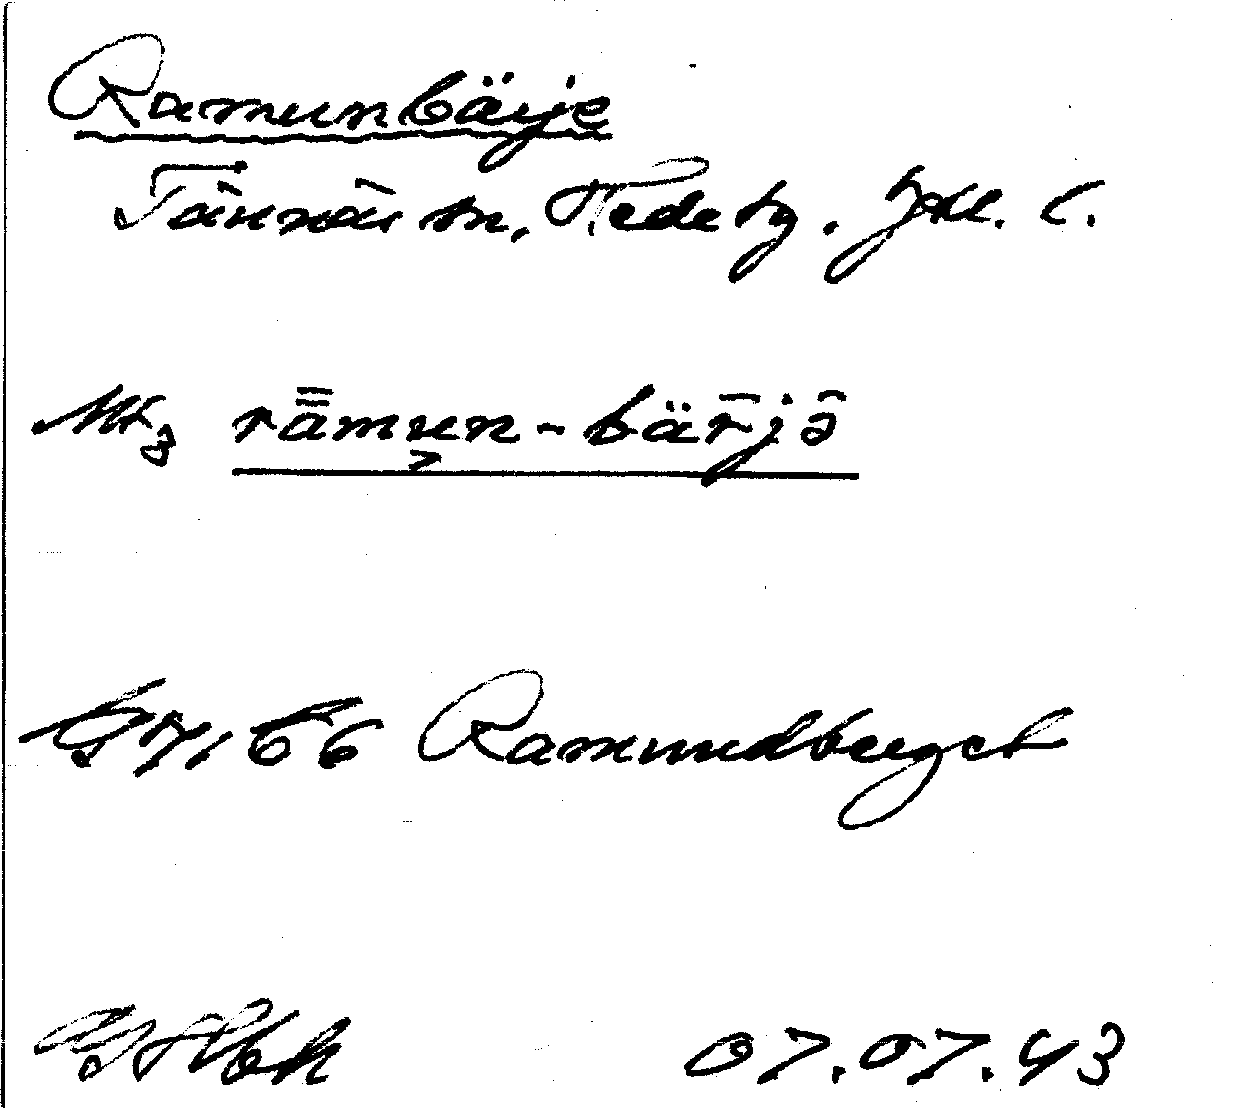 Ramunbärje
Tännäs sn, Hede tg. Jtl. l.
rāmun-bär̄jə̂
66 Ramundberget
07.07.43